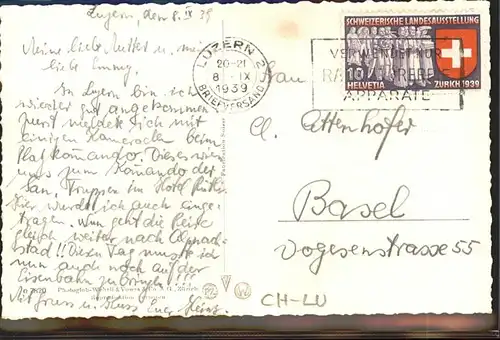 Luzern, den 8. IX 39
Meine liebe Mutter u. mein
liebe Emmy.
In Luzern bin ich
wieder gut angekommen
meldete ich mit
einigen Kameraden beim
Platzkomando. Dieses wies
uns zum Komando der
San. Truppen im Hotel Rütli
hier wurde ich auch einge-
tragen. Nun geht die Reise
gleich weiter nach Alpnach-
stad!! Diesen Tag musste ich
nun auch noch auf der
Eisenbahn zubringen!!
Mit Gruss u. Kuss Euer Heinz.
LUZERN 2
20-21
8. IX
1939
BRIEFVERSAND
SCHWEIZERISCHE LANDESAUSSTELLUNG
10
HELVETIA
ZÜRICH 1939
APPARATE
Frau
E. Attenhofer
Basel
Vogesenstrasse 55
CH-LU